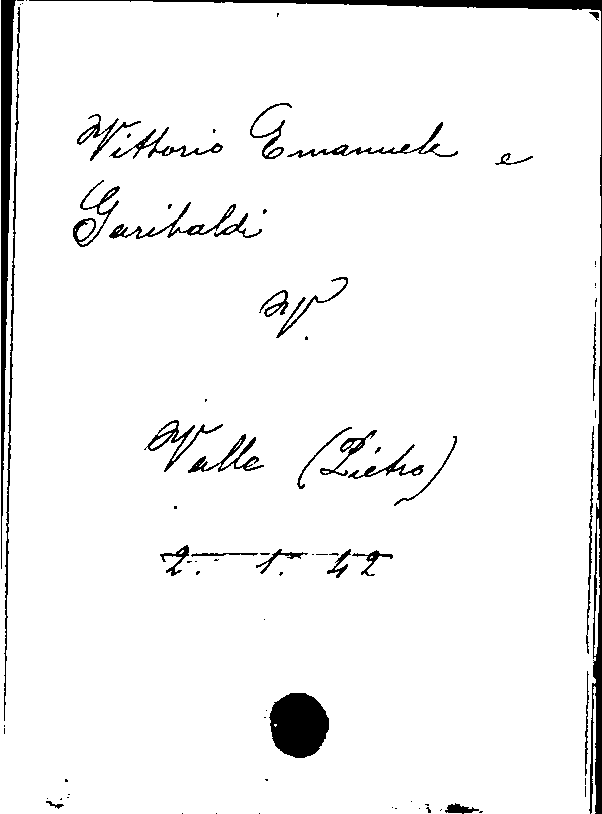 Vittorio Emanuele e
Garibaldi
V.
Valle (Pietro)
2. 1. 42